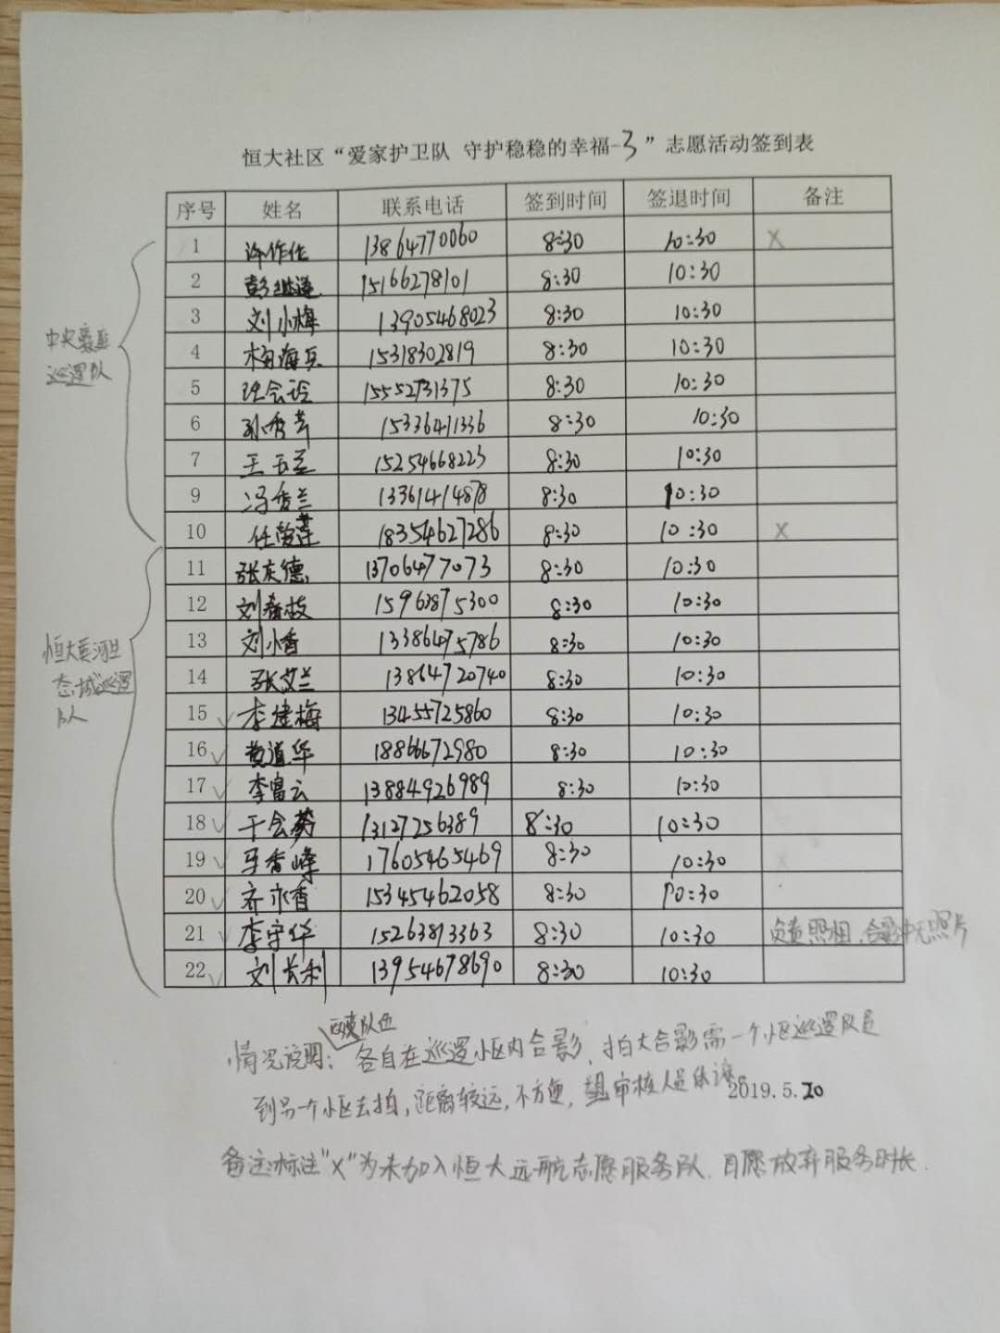 恒大社区“爱家护卫队 守护稳稳的幸福-3”志愿活动签到表
序号 姓名 联系电话 签到时间 签退时间 备注
1 13864770060 8:30 10:30 X
2 彭继莲 15166278101 8:30 10:30
3 刘小梅 13905468023 8:30 10:30
4 杨海兵 15318302819 8:30 10:30
5 15552731375 8:30 10:30
6 孙秀芳 15336411336 8:30 10:30
7 王玉兰 15254668223 8:30 10:30
9 冯秀兰 13361414878 8:30 10:30
10 18354627286 8:30 10:30 X
中央豪庭
巡逻队
11 张友德 13706477073 8:30 10:30
12 刘春枝 15963875300 8:30 10:30
13 刘小香 13386475786 8:30 10:30
14 张文兰 13864720740 8:30 10:30
15 ✓ 李建梅 13455725860 8:30 10:30
16 ✓ 黄道华 18866672980 8:30 10:30
17 ✓ 李富云 13884926989 8:30 10:30
18 ✓ 于会英 13127256389 8:30 10:30
19 ✓ 马秀峰 17605465469 8:30 10:30
20 ✓ 齐亦香 15345462058 8:30 10:30
21 ✓ 李守华 15263813363 8:30 10:30 负责照相,合影中无照片
22 ✓ 刘长利 13954678690 8:30 10:30
恒大黄河生
态城巡逻
队
两支队伍
情况说明:各自在巡逻小区内合影,拍大合影需一个小区巡逻队员
到另一个小区去拍,距离较远,不方便,望审核人员体谅。
2019.5.20
备注标注“X”为未加入恒大远航志愿服务队,自愿放弃服务时长.